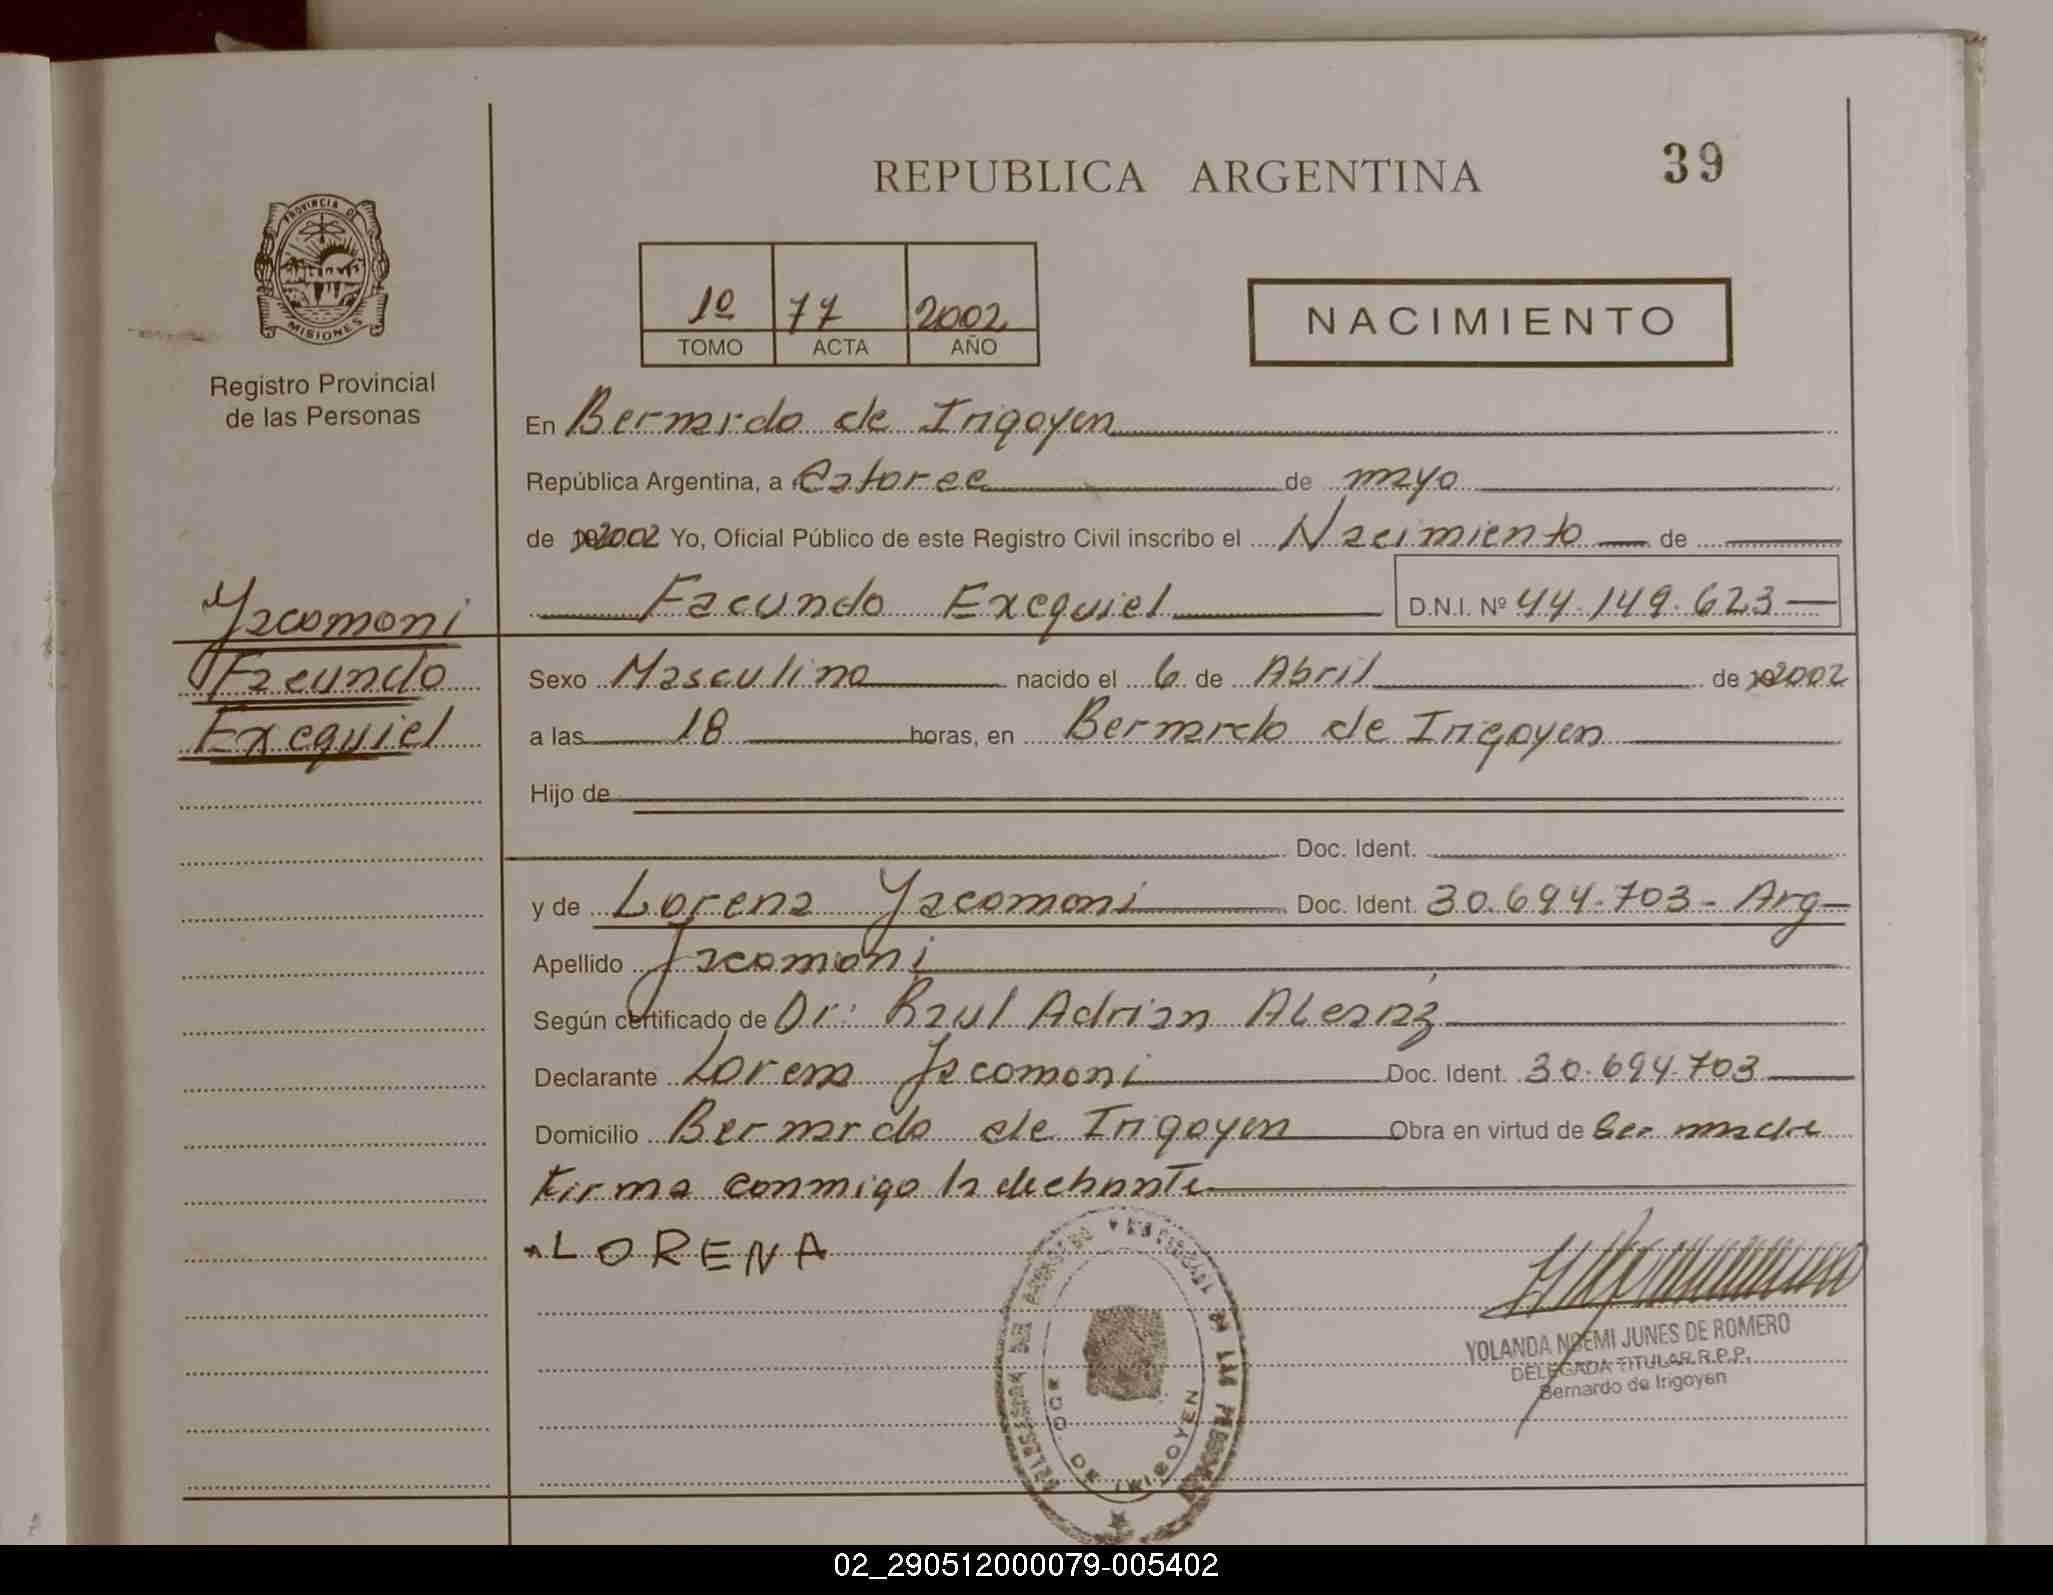 REPUBLICA ARGENTINA
39
PROVINCIA DE
MISIONES
Registro Provincial
de las Personas
1º 77 2002
TOMO ACTA AÑO
NACIMIENTO
En Bernardo de Irigoyen
República Argentina, a Catorce de mayo
de 2002 Yo, Oficial Público de este Registro Civil inscribo el Nacimiento de
Facundo Exequiel D.N.I. Nº 44.149.623
Yacomoni
Facundo
Exequiel
Sexo Masculino nacido el 6 de Abril de 2002
a las 18 horas, en Bernardo de Irigoyen
Hijo de
Doc. Ident.
y de Lorena Yacomoni Doc. Ident. 30.694.703 - Arg
Apellido Yacomoni
Según certificado de Dr: Raul Adrian
Declarante Lorena Yacomoni Doc. Ident. 30.694.703
Domicilio Bernardo de Irigoyen Obra en virtud de Ser madre
Firma conmigo la
LORENA
DE IRIGOYEN
YOLANDA NOEMI JUNES DE ROMERO
DELEGADA TITULAR R.P.P.
Bernardo de Irigoyen
02_290512000079-005402